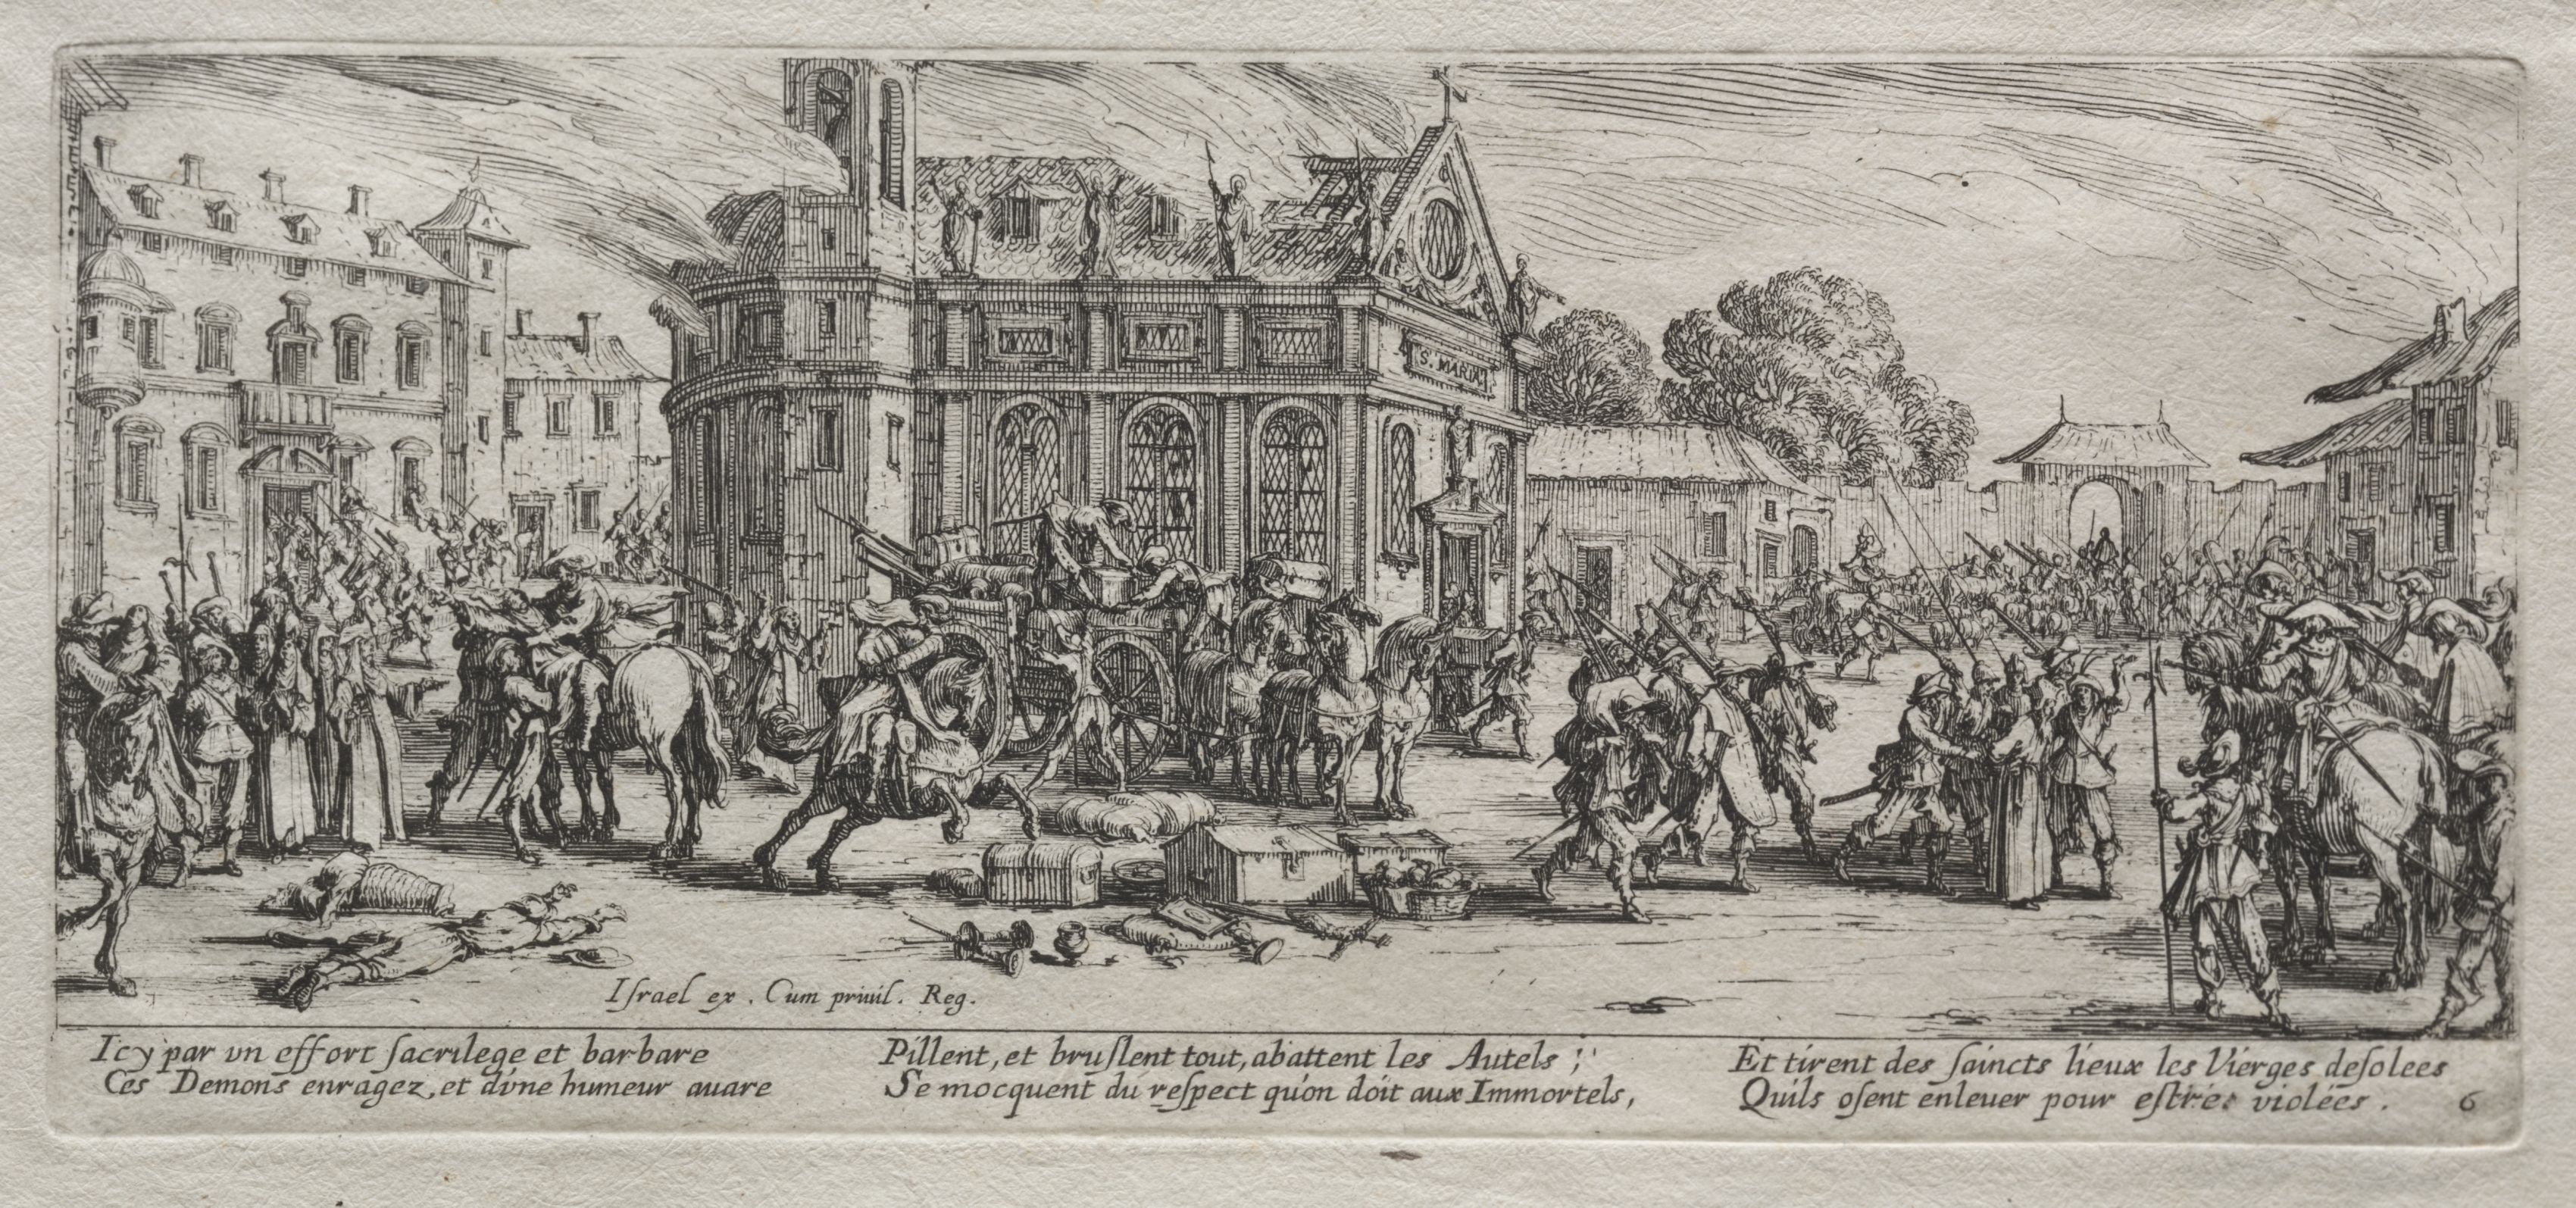 S. MARIA
Iſrael ex. Cum priuil. Reg.
Icy par vn effort ſacrilege et barbare
Ces Demons enragez, et d'vne humeur auare
Pillent, et bruſlent tout, abattent les Autels ;
Se mocquent du reſpect qu'on doit aux Immortels,
Et tirent des ſaincts lieux les Vierges deſolees
Quils oſent enleuer pour eſtre violées.
6